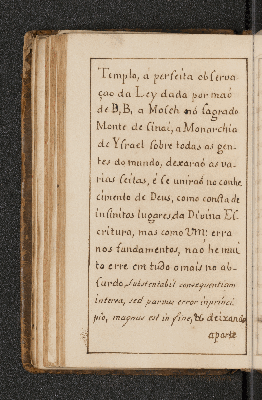 Templo, a perfeita observa
çao da Ley dada por maõ
de D, B, a Moseh nó sagrado
Monte de Sinai, a Monarchia
de Ysrael sobre todas as gen-
tes do mundo, dexaraõ as va-
rias seitas, é se uniraõ no conhe
cimento de Deus, como consta de
infinitos lugares da Divina Es-
critura, mas como VM: erra
nos fundamentos, naõ he mui
to erre em tudo a mais no ab-
surdo, substentabit consequentiam
interea, sed parvus error in princi
pio, magnus est in fine, & deixando
aparte